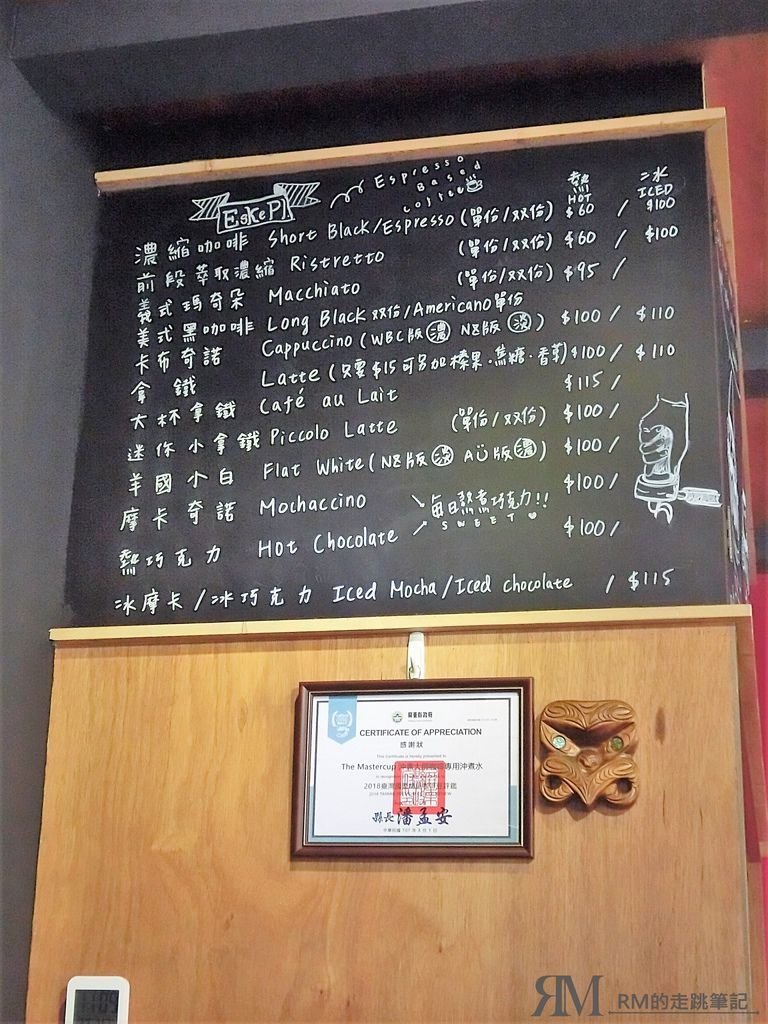 EskePl
Espresso
Based
Coffee
熱 HOT
冰 ICED
濃縮咖啡 Short Black/Espresso (單份/双份) $60 / $100
前段萃取濃縮 Ristretto (單份/双份) $60 / $100
義式瑪奇朵 Macchiato (單份/双份) $95 /
美式黑咖啡 Long Black 双份/Americano 單份 $100 / $110
卡布奇諾 Cappuccino (WBC版 濃 NZ版 淡) $100 / $110
拿鐵 Latte (只要$15可另加榛果.焦糖.香草)
大杯拿鐵 Café au Lait $115 /
迷你小拿鐵 Piccolo Latte (單份/双份) $100 /
羊國小白 Flat White (NZ版 淡 AU版 濃) $100 /
摩卡奇諾 Mochaccino $100 /
每日熬煮巧克力!!
SWEET
熱巧克力 Hot Chocolate $100 /
冰摩卡/冰巧克力 Iced Mocha/Iced chocolate / $115
屏東縣政府
CERTIFICATE OF APPRECIATION
感謝狀
This Certificate is hereby presented to
The Mastercup
專用沖煮水
縣長 潘孟安
中華民國 107 年 8 月 1 日
RM RM的走跳筆記